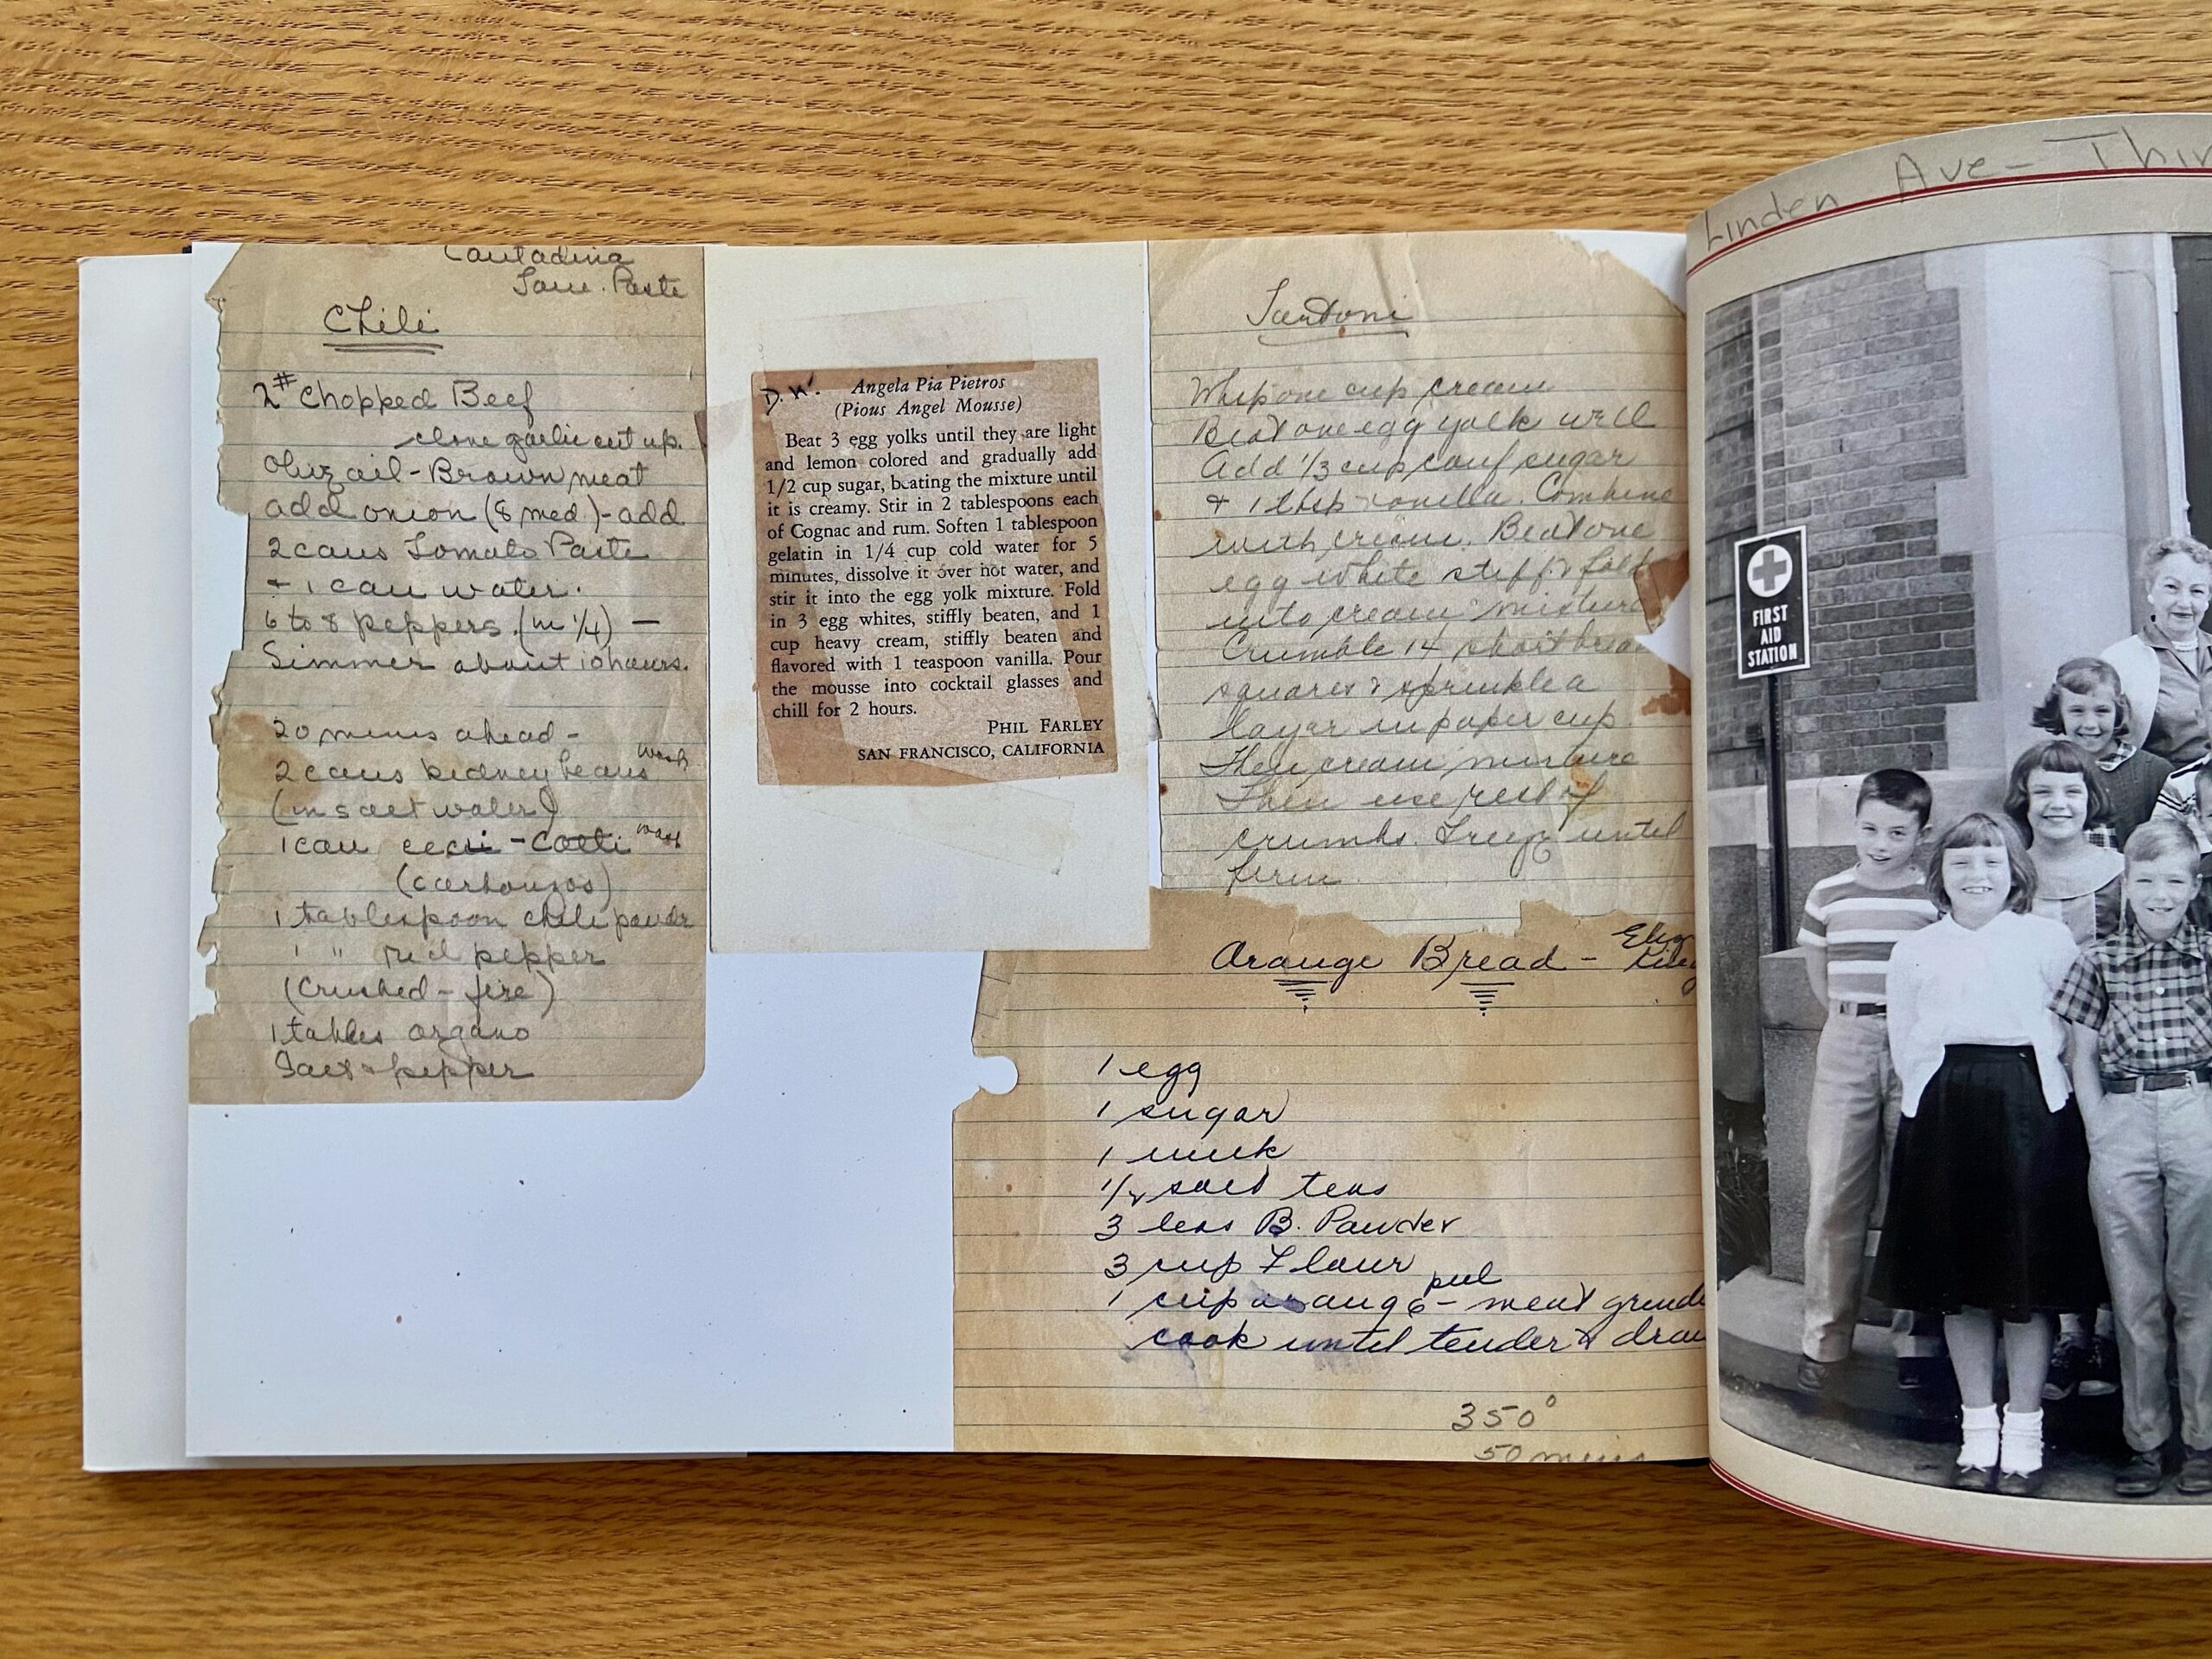 Contadina
Tom. Paste
Chili
2# Chopped Beef
clove garlic cut up.
Olive oil - Brown meat
add onion (8 med) - add
2 cans Tomato Paste
+ 1 can water.
6 to 8 peppers (in 1/4) —
Simmer about 10 hours.
20 mins ahead -
2 cans kidney beans wash
(in salt water)
1 can ceci - wash
1 tablespoon chili powdr
1 " red pepper
(Crushed - fire)
1 tables organo
Salt & pepper
D.W.
Angela Pia Pietros
(Pious Angel Mousse)
Beat 3 egg yolks until they are light
and lemon colored and gradually add
1/2 cup sugar, beating the mixture until
it is creamy. Stir in 2 tablespoons each
of Cognac and rum. Soften 1 tablespoon
gelatin in 1/4 cup cold water for 5
minutes, dissolve it over hot water, and
stir it into the egg yolk mixture. Fold
in 3 egg whites, stiffly beaten, and 1
cup heavy cream, stiffly beaten and
flavored with 1 teaspoon vanilla. Pour
the mousse into cocktail glasses and
chill for 2 hours.
PHIL FARLEY
SAN FRANCISCO, CALIFORNIA
Whip one cup cream
Beat one egg yolk well
Add 1/3 cup conf sugar
+ 1 tbsp vanilla. Combine
with cream. Beat one
egg white stiff & fold
into cream mixture
Crumble 14 short bread
squares & sprinkle a
layer in paper cup.
Then cream mixture
Then use rest of
crumbs. Freeze until
firm
Orange Bread -
1 egg
1 sugar
1 milk
1/2 salt teas
3 teas B. Powder
3 cup Flour
1 cup orange peel - meat grinde
cook until tender & drai
350°
50 mins
Linden Ave - Thir
FIRST
AID
STATION